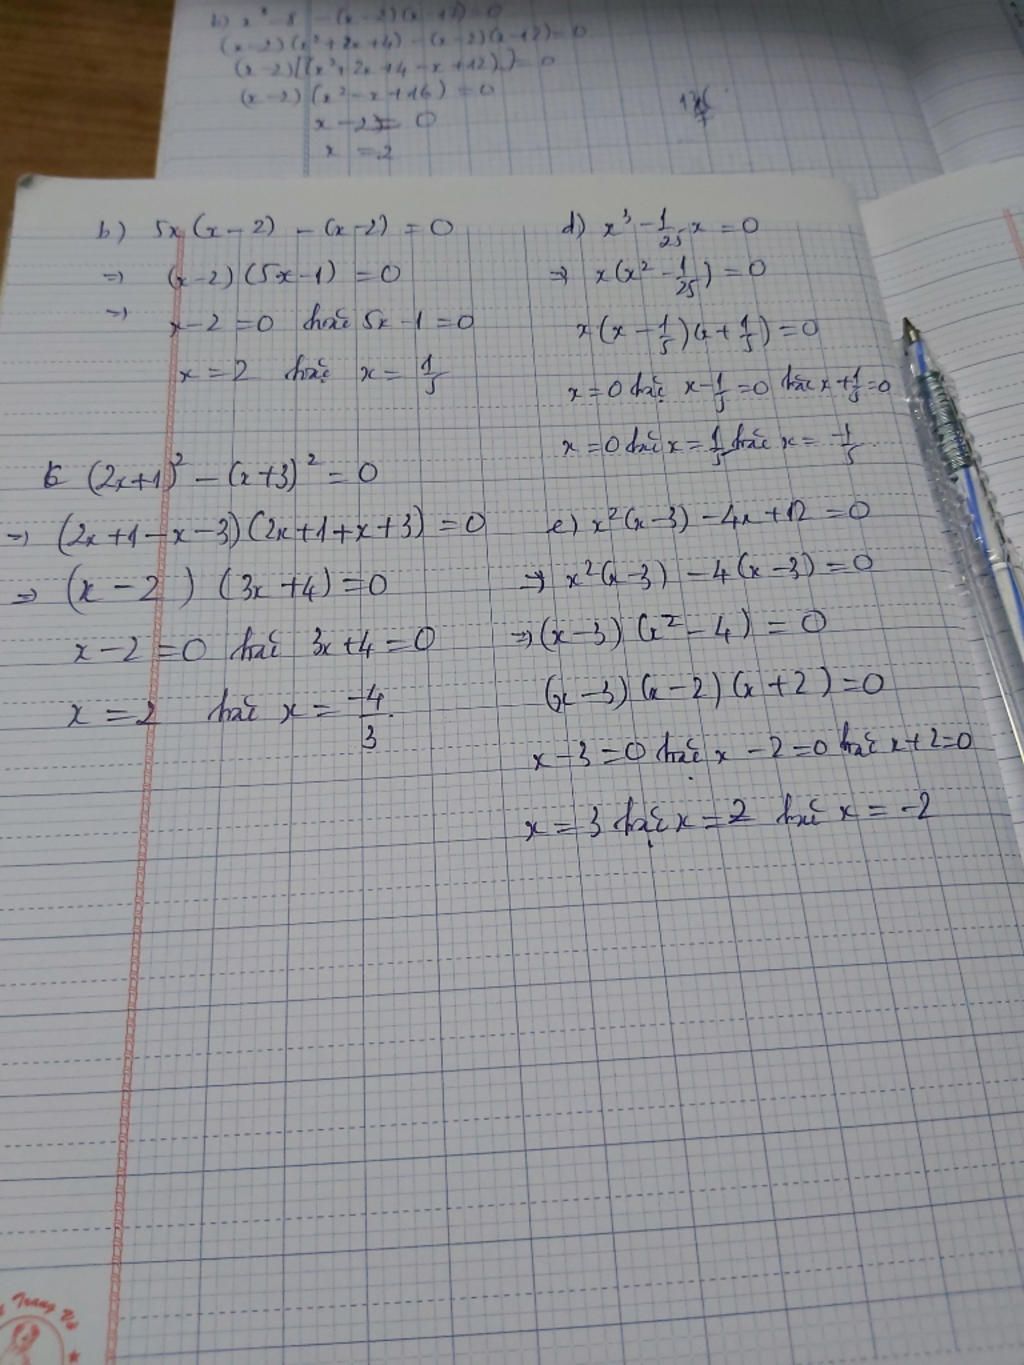 b) x³ - 8 - (x-2)(x-12) = 0
(x-2)(x²+2x+4) - (x-2)(x-12) = 0
(x-2)[(x²+2x+4 - x+12)] = 0
(x-2)(x² - x+16) = 0
x - 2 = 0
x = 2
b) 5x(x-2) - (x-2) = 0
=> (x-2)(5x-1) = 0
=> x-2 = 0 hoặc 5x-1 = 0
x = 2 hoặc x = 1/5
c (2x+1)² - (x+3)² = 0
=> (2x+1-x-3)(2x+1+x+3) = 0
=> (x-2) (3x+4) = 0
x-2 = 0 hoặc 3x+4 = 0
x = 2 hoặc x = -4/3
d) x³ - 1/25 x = 0
=> x(x² - 1/25) = 0
x(x - 1/5)(x + 1/5) = 0
x = 0 hoặc x - 1/5 = 0 hoặc x + 1/5 = 0
x = 0 hoặc x = 1/5 hoặc x = -1/5
e) x²(x-3) - 4x + 12 = 0
=> x²(x-3) - 4(x-3) = 0
=> (x-3)(x²-4) = 0
(x-3)(x-2)(x+2) = 0
x-3 = 0 hoặc x-2 = 0 hoặc x+2 = 0
x = 3 hoặc x = 2 hoặc x = -2